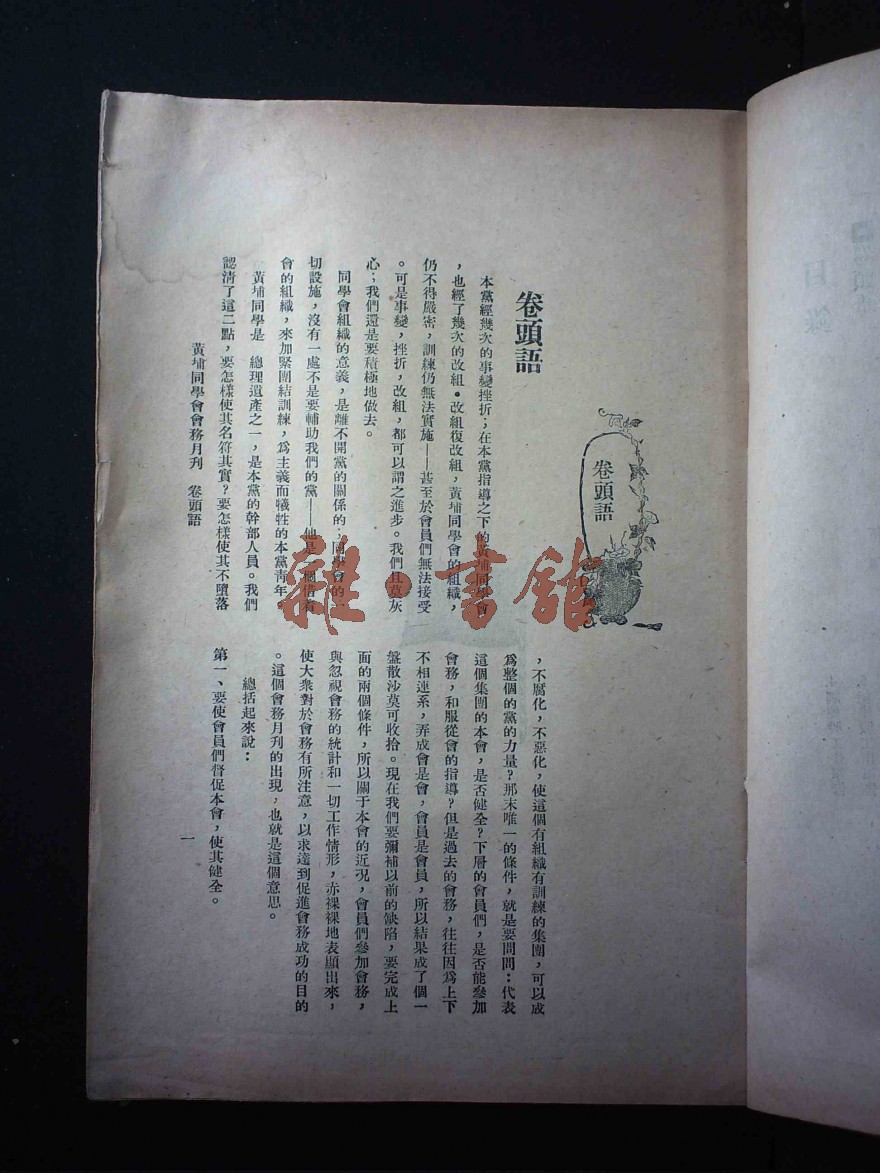 卷頭語
卷頭語
本黨經幾次的事變挫折；在本黨指導之下的黃埔同學會
，也經了幾次的改組。改組復改組，黃埔同學會的組織，
仍不得嚴密，訓練仍無法實施——甚至於會員們無法接受
。可是事變，挫折，改組，都可以謂之進步。我們且莫灰
心；我們還是要積極地做去。
同學會組織的意義，是離不開黨的關係的；同學會的一
切設施，沒有一處不是要輔助我們的黨——他是一個借有
會的組織，來加緊團結訓練，爲主義而犧牲的本黨靑年
黃埔同學是　總理遺產之一，是本黨的幹部人員。我們
認清了這二點，要怎樣使其名符其實？要怎樣使其不墮落
，不腐化，不惡化，使這個有組織有訓練的集團，可以成
爲整個的黨的力量？那末唯一的條件，就是要問問：代表
這個集團的本會，是否健全？下層的會員們，是否能參加
會務，和服從會的指導？但是過去的會務，往往因爲上下
不相連系，弄成會是會，會員是會員，所以結果成了個一
盤散沙莫可收拾。現在我們要彌補以前的缺陷，要完成上
面的兩個條件，所以關于本會的近況，會員們參加會務，
與忽視會務的統計和一切工作情形，赤裸裸地表顯出來，
使大衆對於會務有所注意，以求達到促進會務成功的目的
。這個會務月刊的出現，也就是這個意思。
總括起來說：
第一、要使會員們督促本會，使其健全。
黃埔同學會會務月刊　卷頭語
一
目錄
雜·書館